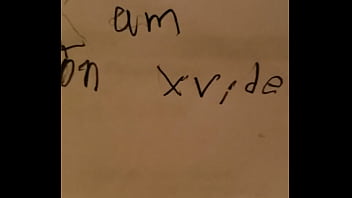 am
on xvide